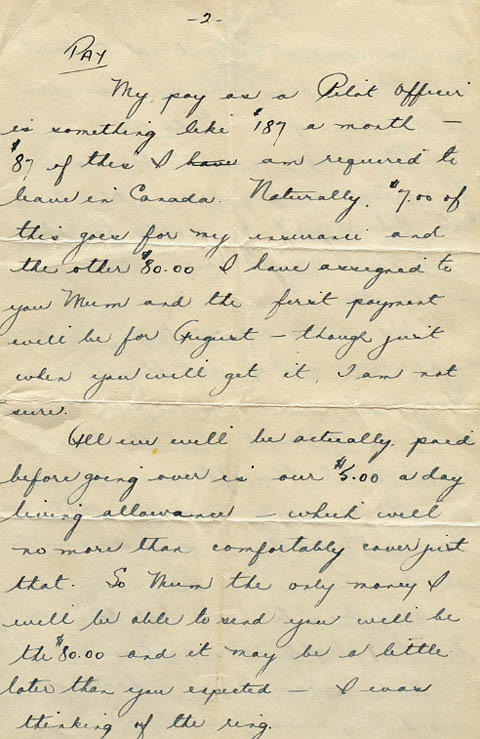 -2-
PAY
My pay as a Pilot Officer
is something like $187 a month -
$87 of this I have am required to
leave in Canada. Naturally, $7.00 of
this goes for my insurance and
the other $80.00 I have assigned to
you Mum and the first payment
will be for August - though just
when you will get it, I am not
sure.
All we will be actually paid
before going over is our $5.00 a day
living allowance - which will
no more than comfortably cover just
that. So Mum the only money I
will be able to send you will be
the $80.00 and it may be a little
later than you expected - I was
thinking of the ring.